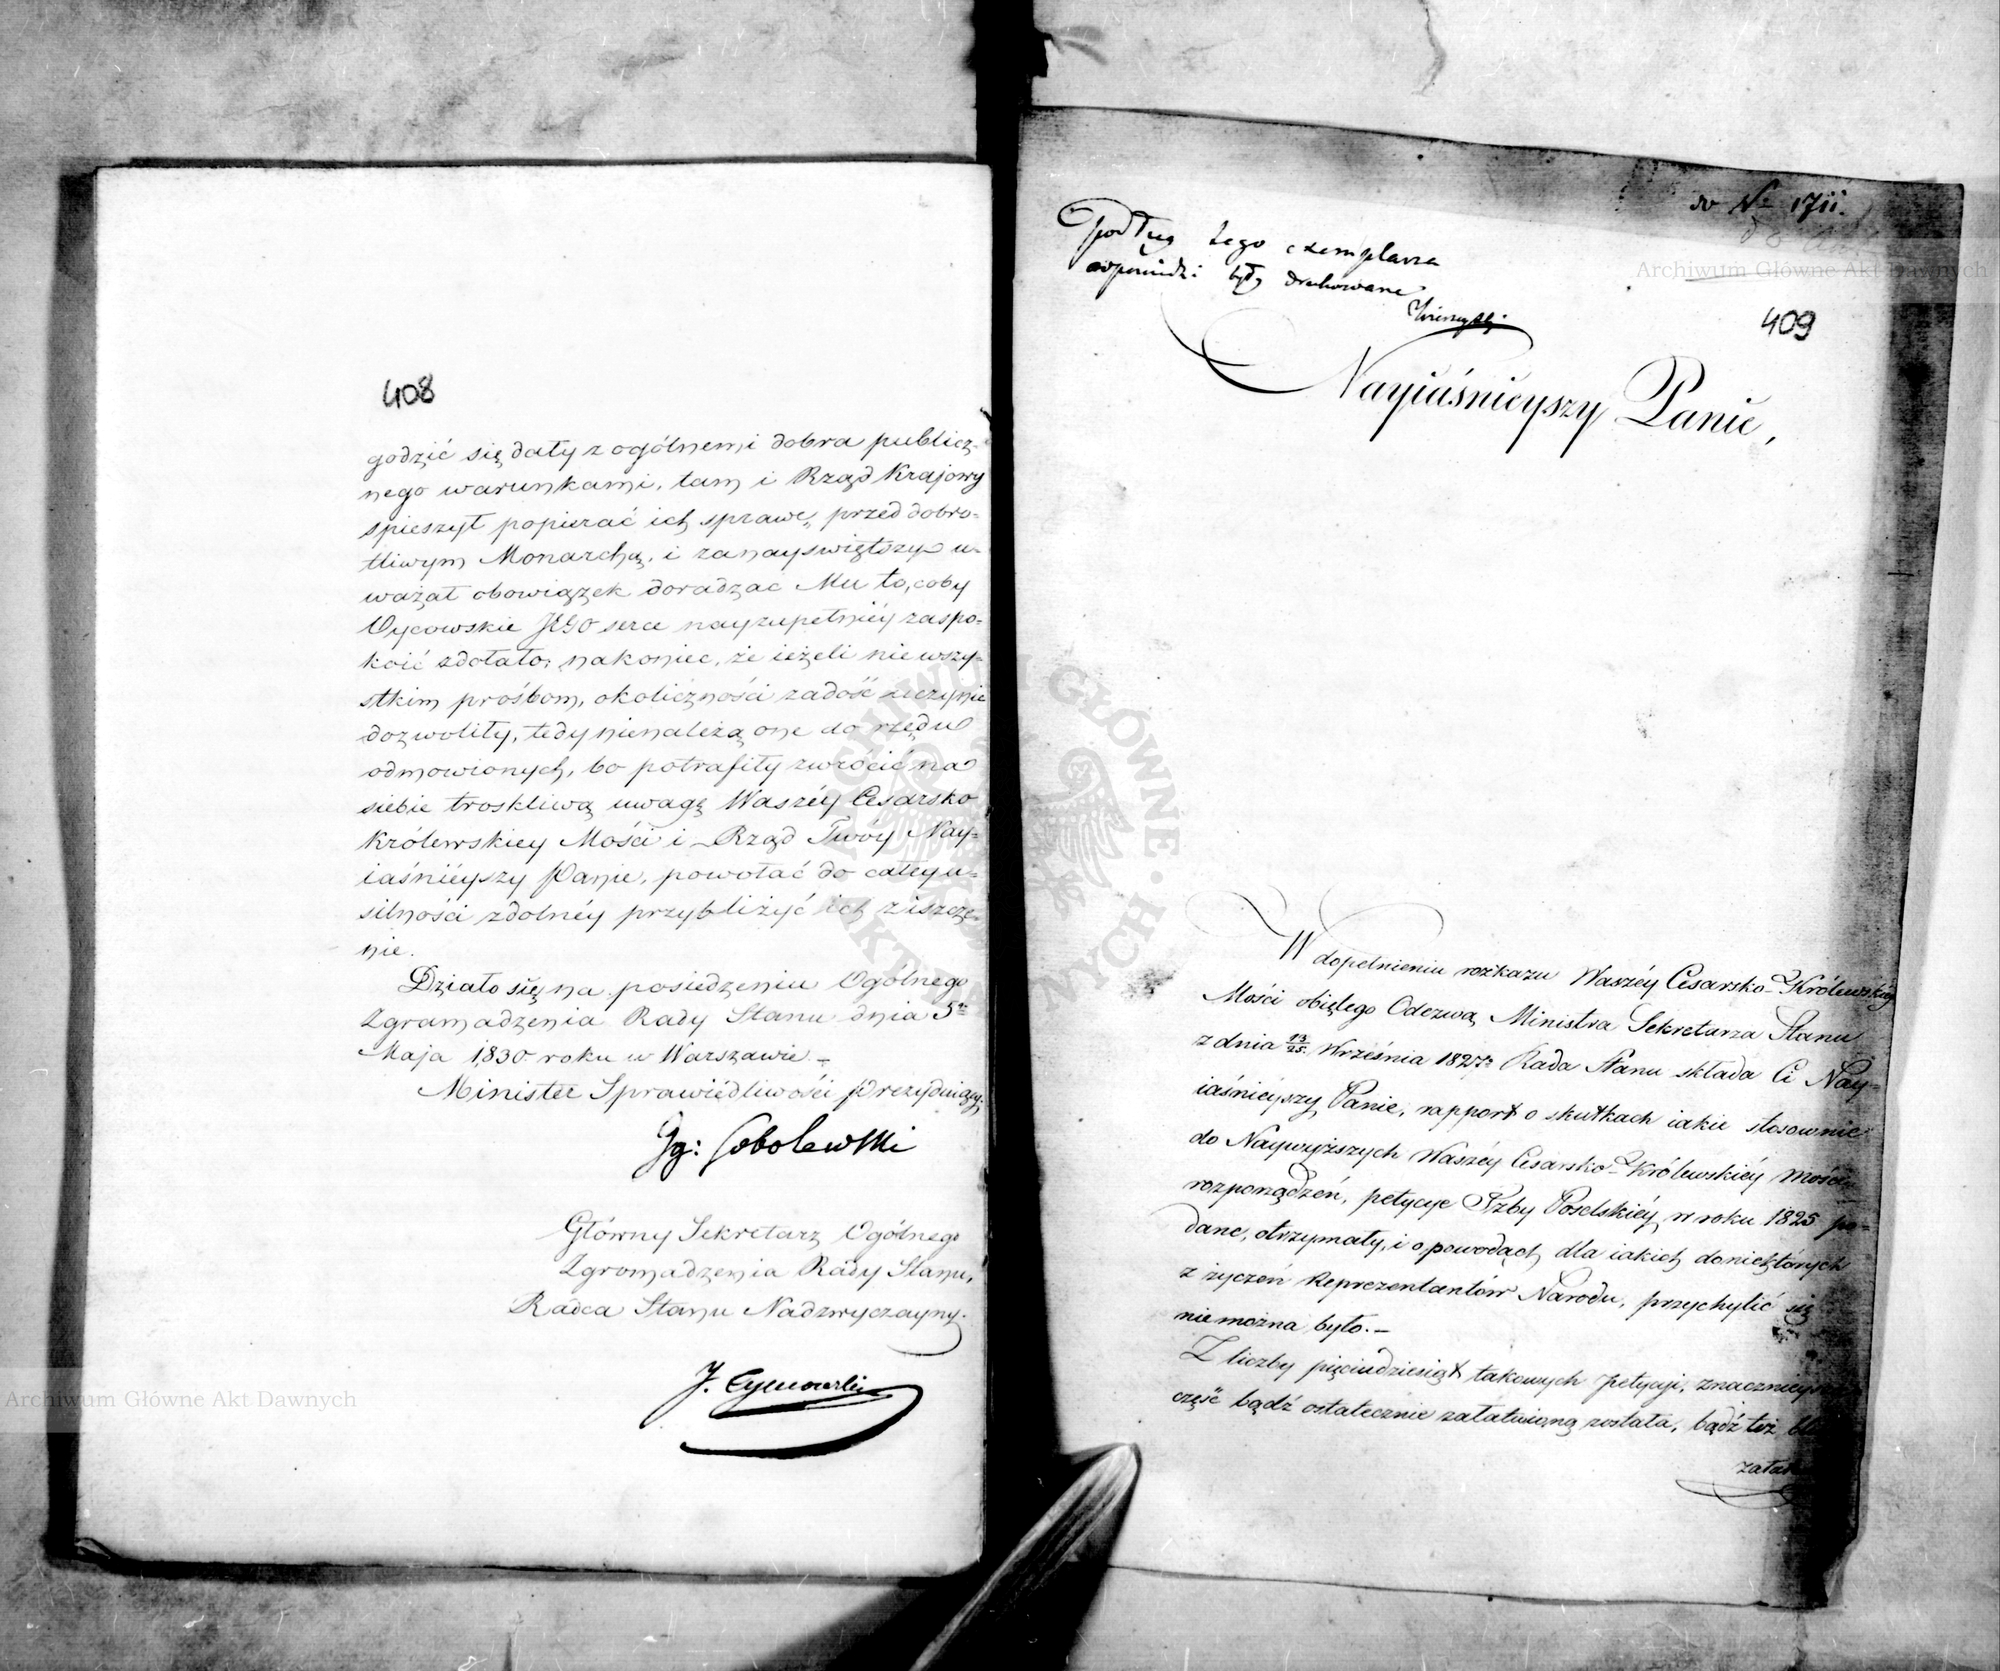 408
godzić się dały z ogólnemi dobra publicz-
nego warunkami, tam i Rząd Krajowy
spieszył popierać ich sprawę, przed dobro-
tliwym Monarchą, i za nayświętszy u-
ważał obowiązek doradzać Mu to, coby
Oycowskie JEGO serce nayzupełniéy zaspo-
koić zdołało; nakoniec, że ieżeli nie wszy-
stkim prośbom, okoliczności zadość uczynić
dozwoliły, tedy nienależą one do rzędu
odmowionych, bo potrafiły zwrócić na
siebie troskliwą uwagę Waszéy Cesarsko
Królewskiey Mości i Rząd Twóy Nay-
iaśniéyszy Panie, powołać do całey u-
silności zdolnéy przybliżyć ich ziszcze-
nie.
Działo się na posiedzeniu Ogólnego
Zgromadzenia Rady Stanu dnia 5go
Maja 1830 roku w Warszawie –
Minister Sprawiédliwości Prezyduiący.
Ig: Sobolewski
Główny Sekretarz Ogólnego
Zgromadzenia Rady Stanu,
Radca Stanu Nadzwyczayny.
J. Tymowski
do No 1711.
Podług tego exemplarza
odpowiedzi były drukowane
409
Nayiaśnieyszy Panie,
W dopełnieniu rozkazu Waszéy Cesarsko-Królewskiéy
Mości obiętego Odezwą Ministra Sekretarza Stanu
z dnia 13/25. Września 1827 r. Rada Stanu składa Ci Nay-
iaśnieyszy Panie, rapport o skutkach iakie stosownie
do Naywyższych Waszéy Cesarsko-Królewskiéy Mości
rozporządzeń, petycye Izby Poselskiéy w roku 1825 po-
dane, otrzymały, i o powodach dla iakich do niektórych
z życzeń Reprezentantów Narodu, przychylić się
nie można było. –
Z liczby pięciudziesiąt takowych petycyi, znacznieysza
część bądź ostatecznie załatwioną została, bądź też